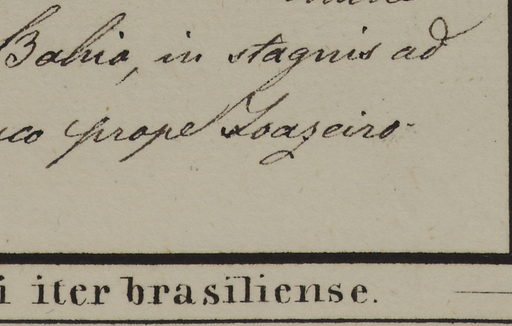 Bahia, in stagnis ad
co prope Joazeiro
i iter brasiliense.